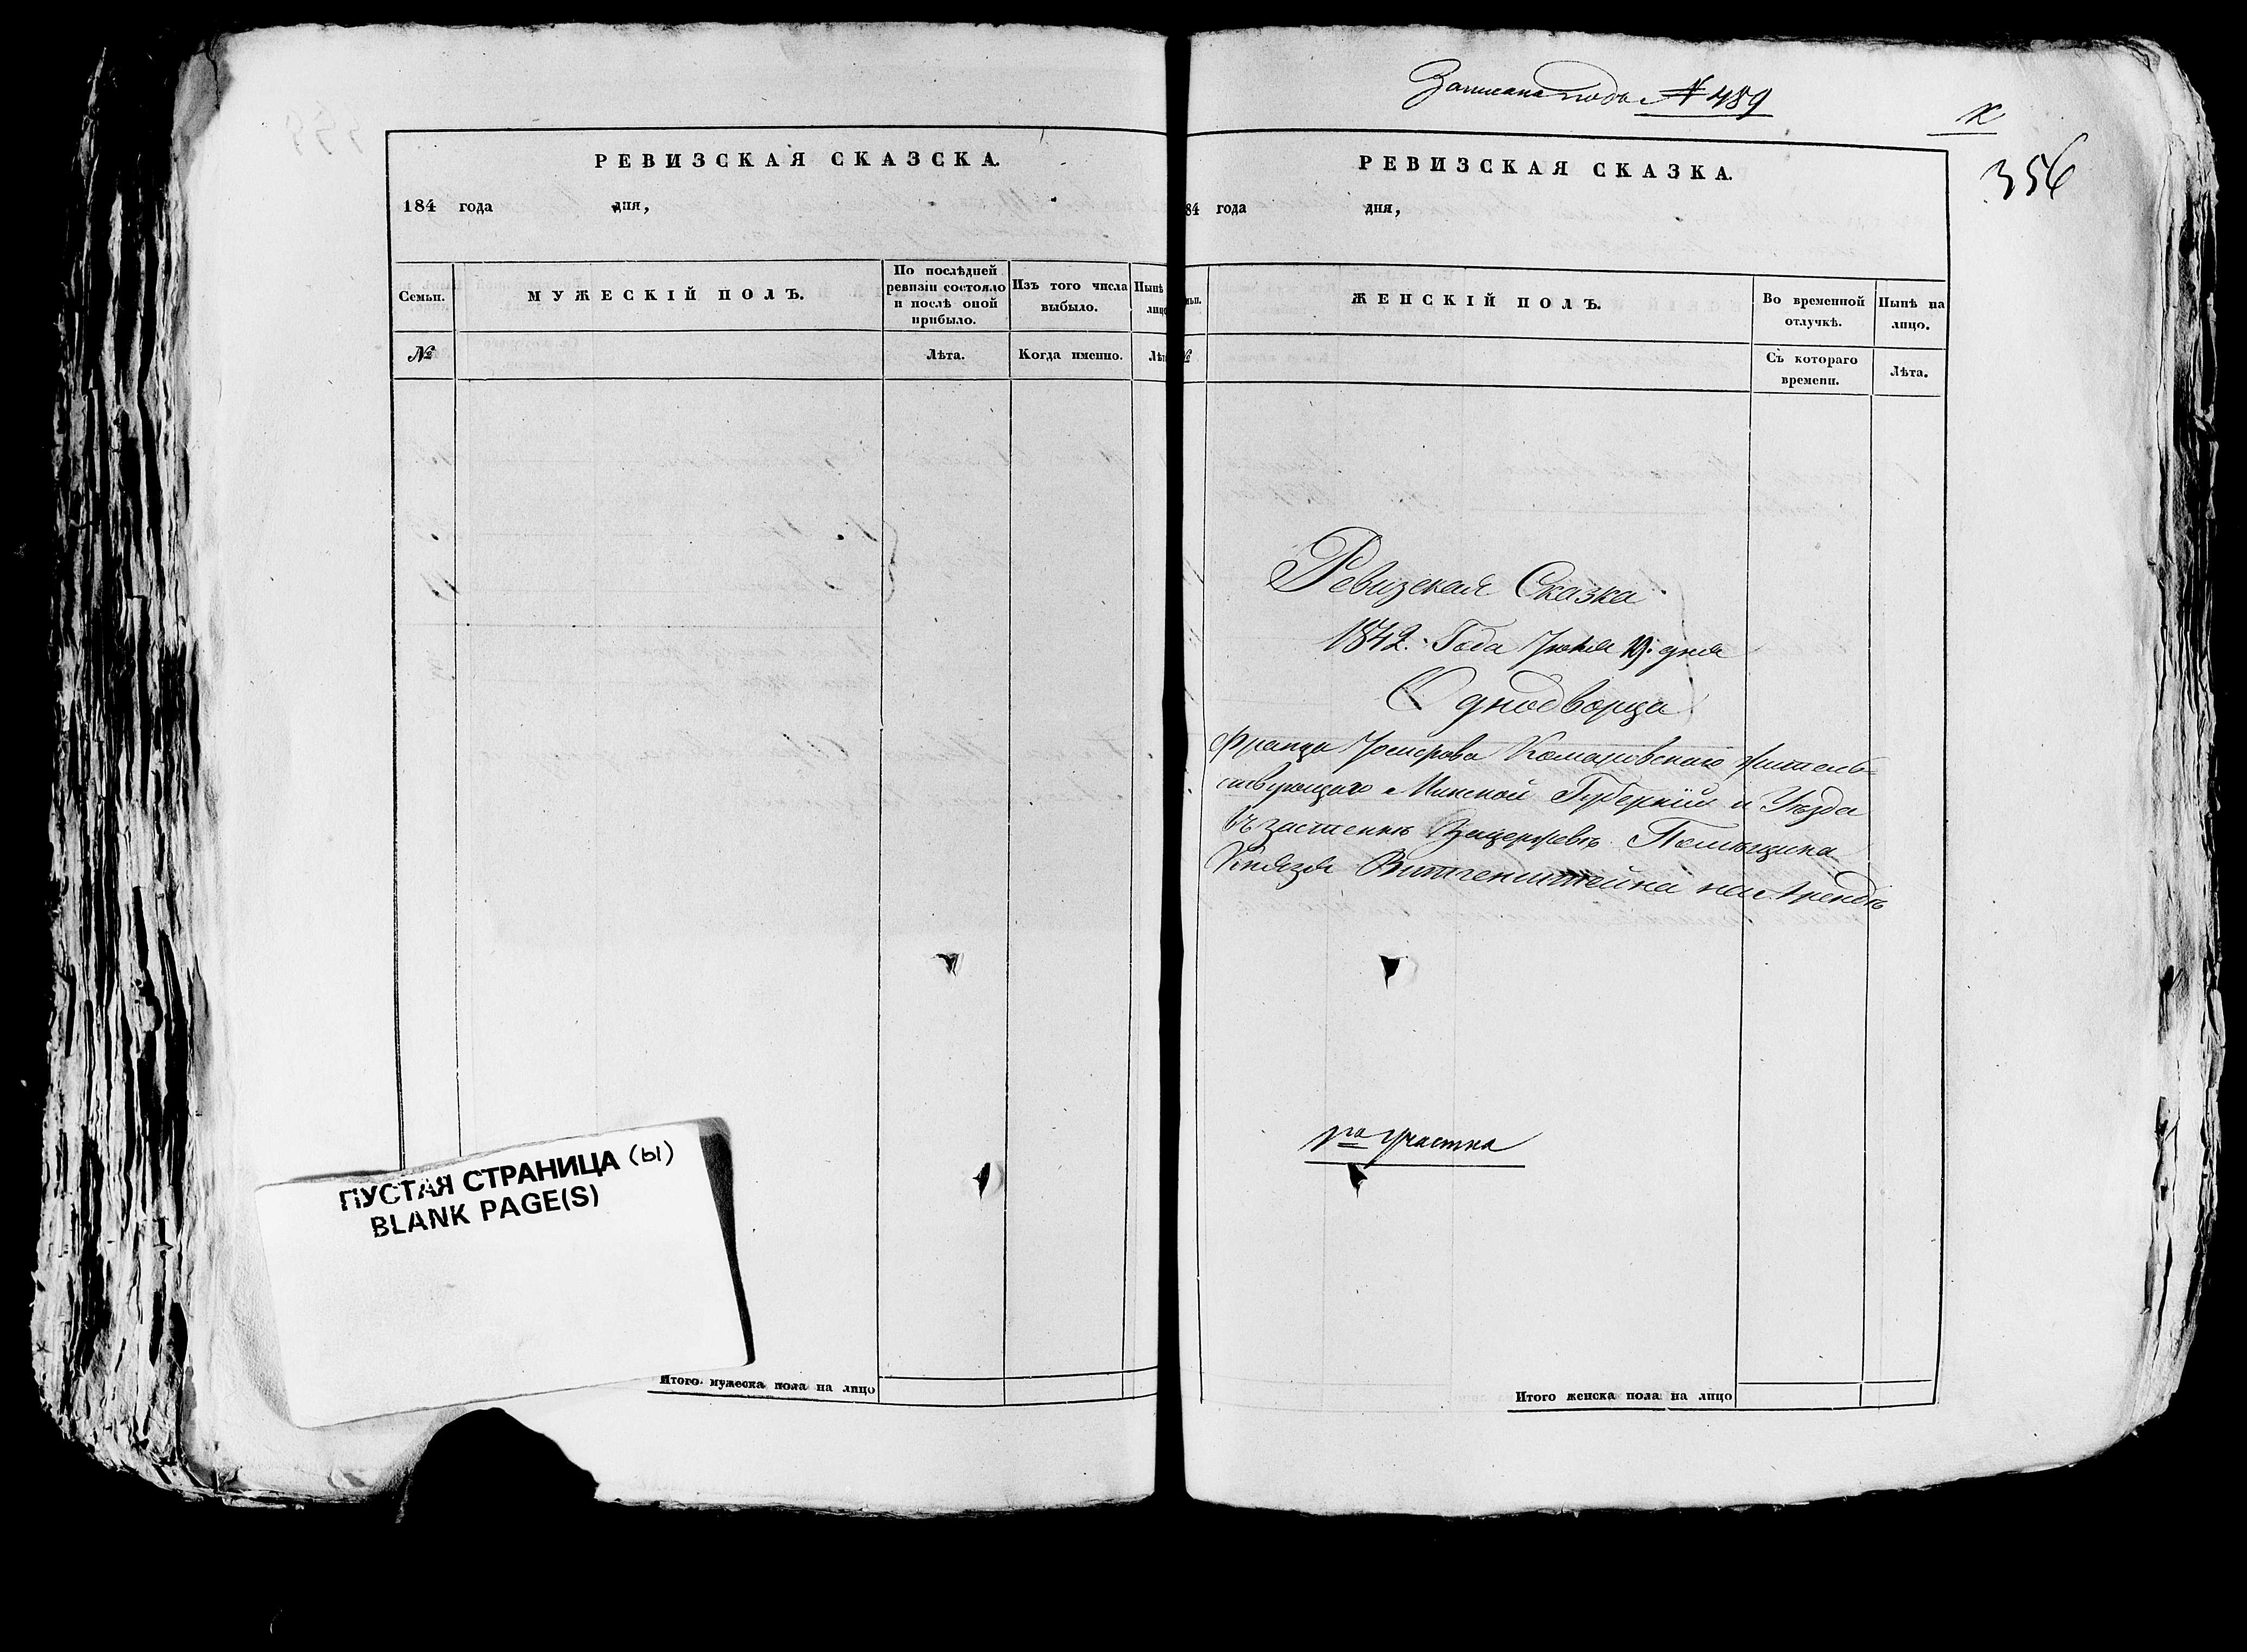 РЕВИЗСКАЯ СКАЗСКА.
184 года дня,
Семьи.
МУЖЕСКІЙ ПОЛЪ.
По послѣдней
ревизіи состояло
и послѣ оной
прибыло.
Изъ того числа
выбыло.
Нынѣ
лицо
№
Лѣта.
Когда именно.
Лѣт
ПУСТАЯ СТРАНИЦА (ы)
BLANK PAGE(S)
Итого мужеска пола на лицо
Записана подъ № 489
К
356
РЕВИЗСКАЯ СКАЗКА.
84 года дня,
мьи.
ЖЕНСКІЙ ПОЛЪ.
Во временной
отлучкѣ.
Нынѣ на
лицо.
№
Съ котораго
времени.
Лѣта.
Ревизская Сказка
1842. Года дня
Однодворца
Франца Комаровскаго житель=
ствующаго Минской Губерніи и Уѣзда
въ застенкѣ Помѣщика
Князя Витгенштейна на Арендѣ
участка
Итого женска пола на лицо